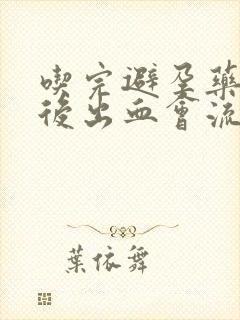 喫完避孕藥
後出血會流
葉依舞